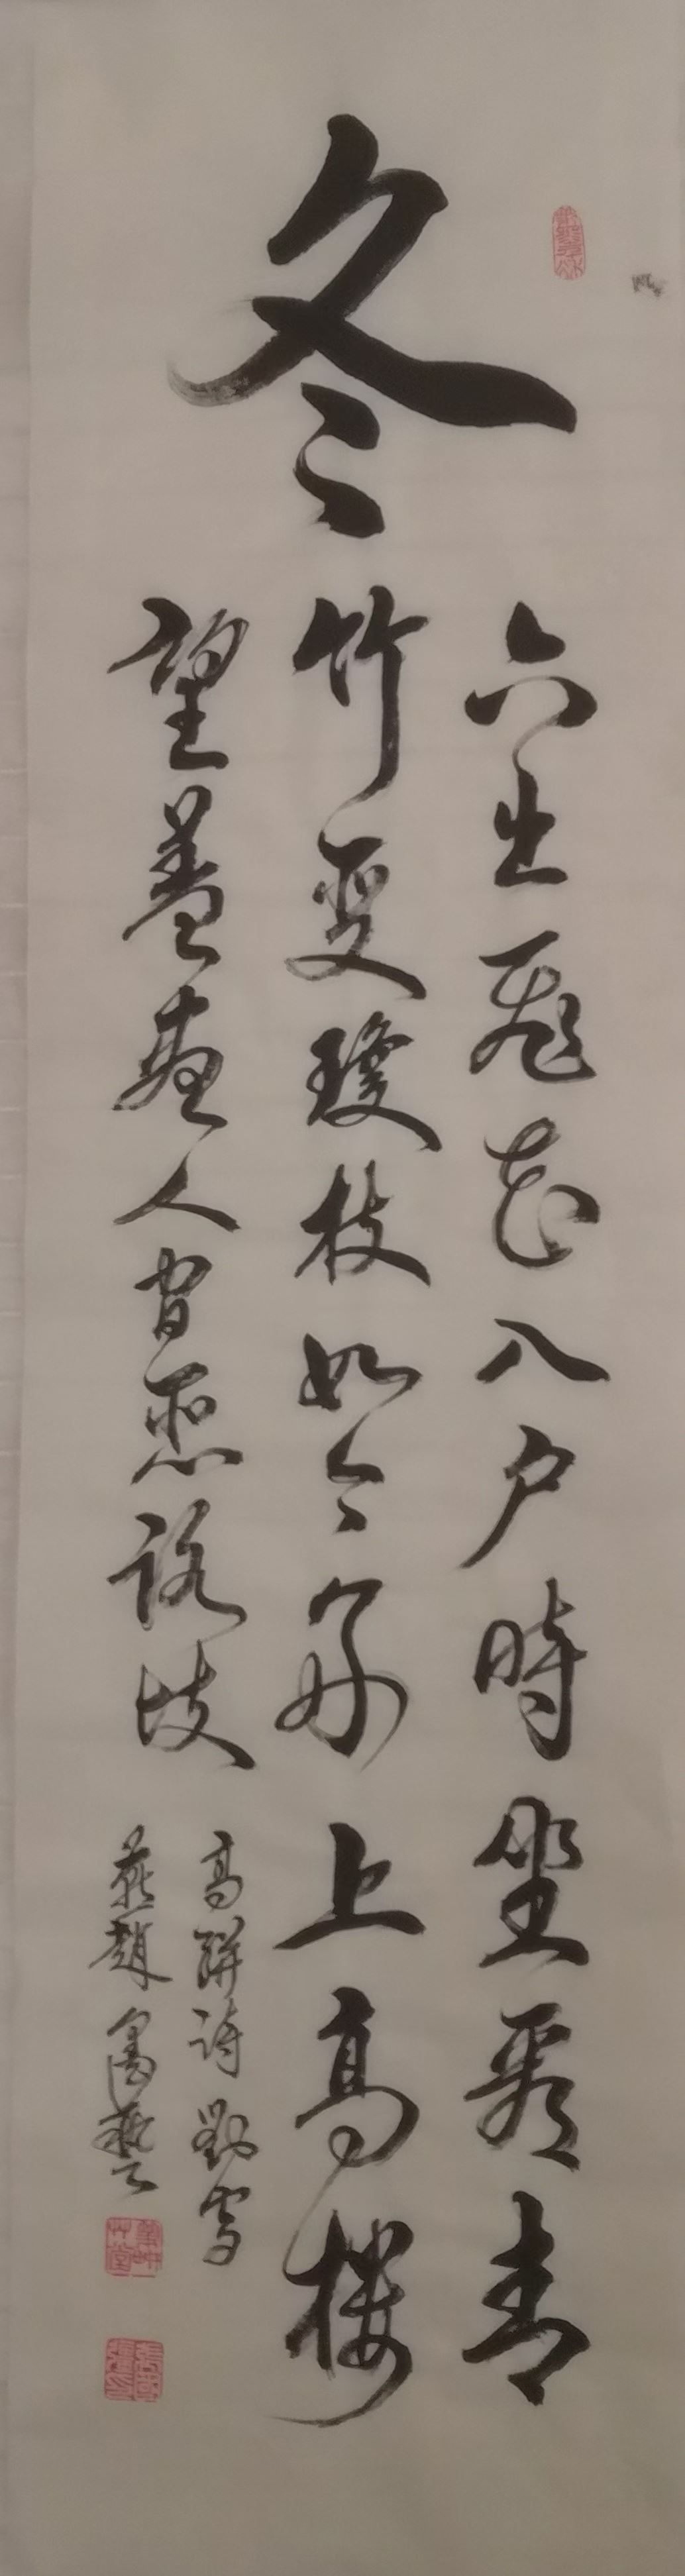 冬
六出飛花入戶時坐看青
竹變瓊枝如今好上高樓
望蓋盡人間惡路歧
高駢詩對雪
燕趙